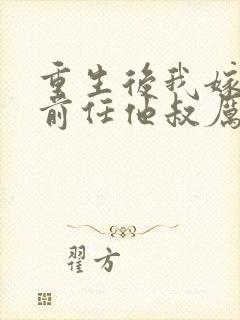 重生後我嫁
前任他叔厲
翟方